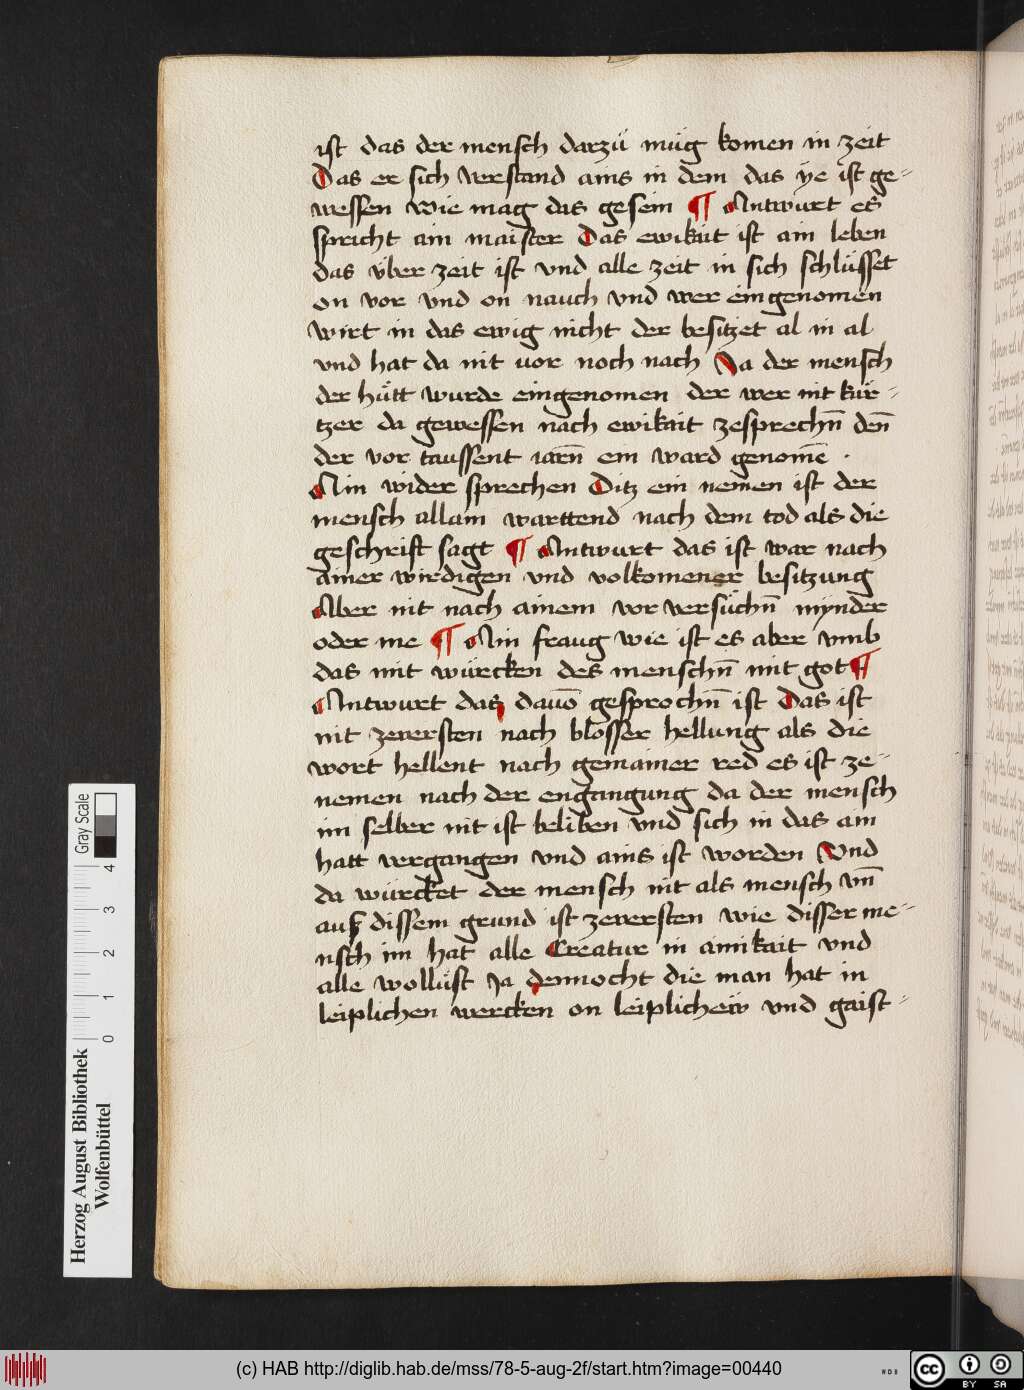 ist das der mensch darzů műg komen in zeit
Das er sich verstand ains in dem das ẏe ist ge-
wessen wie mag das gesein ¶ Antwurt es
spricht ain maister Das ewikait ist ain leben
das über zeit ist vnd alle zeit in sich schlüsset
on vor vnd on nauch vnd wer eingenomen
wirt in das ewig nicht der besitzet al in al
vnd hat da nit vor noch nach Ja der mensch
der hůtt wurde eingenomen der wer nit kür-
tzer da gewessen nach ewikait zesprechn̄ den̄
der vor taussent iarn̄ ein ward genomē .
Ain wider sprechen Ditz ein nemen ist der
mensch allain warttend nach dem tod als die
geschrift sagt ¶ Antwurt das ist war nach
ainer wirdigen vnd volkomener besitzung
Aber nit nach ainem vor versůchn̄ mynder
oder me ¶ Ain fraug wie ist es aber vmb
das mit würcken des menschn̄ mit got ¶
Antwurt das dauō gesprochn̄ ist Das ist
nit zeuersten nach blosser hellung als die
wort hellent nach gemainer red es ist ze-
nemen nach der engangung da der mensch
im selber nit ist beliben vnd sich in das ain
hatt vergangen vnd ains ist worden Vnd
da würcket der mensch nit als mensch vn̄
auf dissem grund ist zeuersten wie disser me-
nsch im hat alle Creatur in ainikait vnd
alle wollüst Ja dennocht die man hat in
leiplichen wercken on leiplichew vnd gaist-
Herzog August Bibliothek
Wolfenbüttel
0 1 2 3 4
Gray Scale
(c) HAB http://diglib.hab.de/mss/78-5-aug-2f/start.htm?image=00440
WDB
cc BY SA